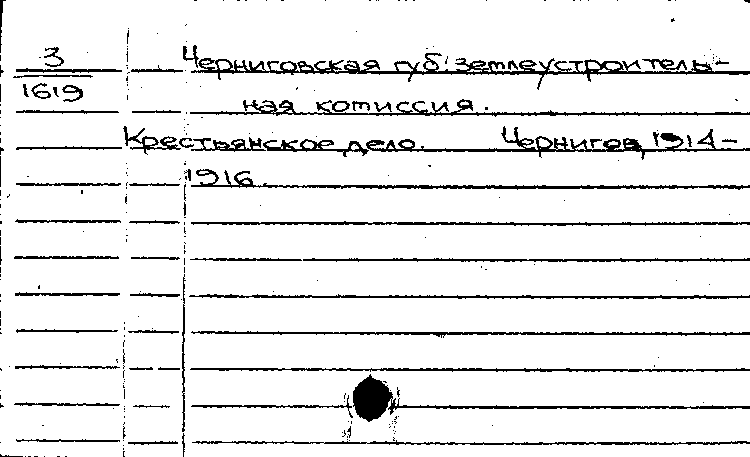 3
1619
Черниговская губ. землеустроитель-
ная комиссия.
Крестьянское дело. Чернигов, 1914-
1916.